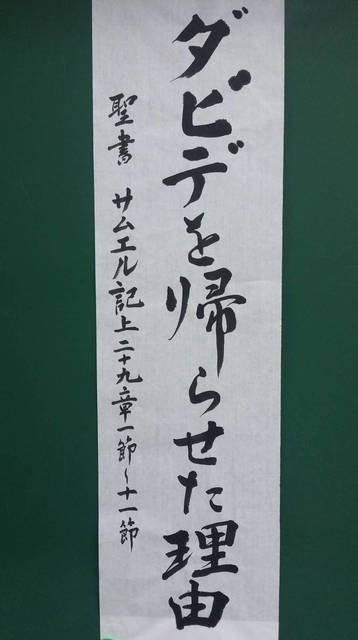 ダビデを帰らせた理由
聖書 サムエル記上二十九章一節~十一節